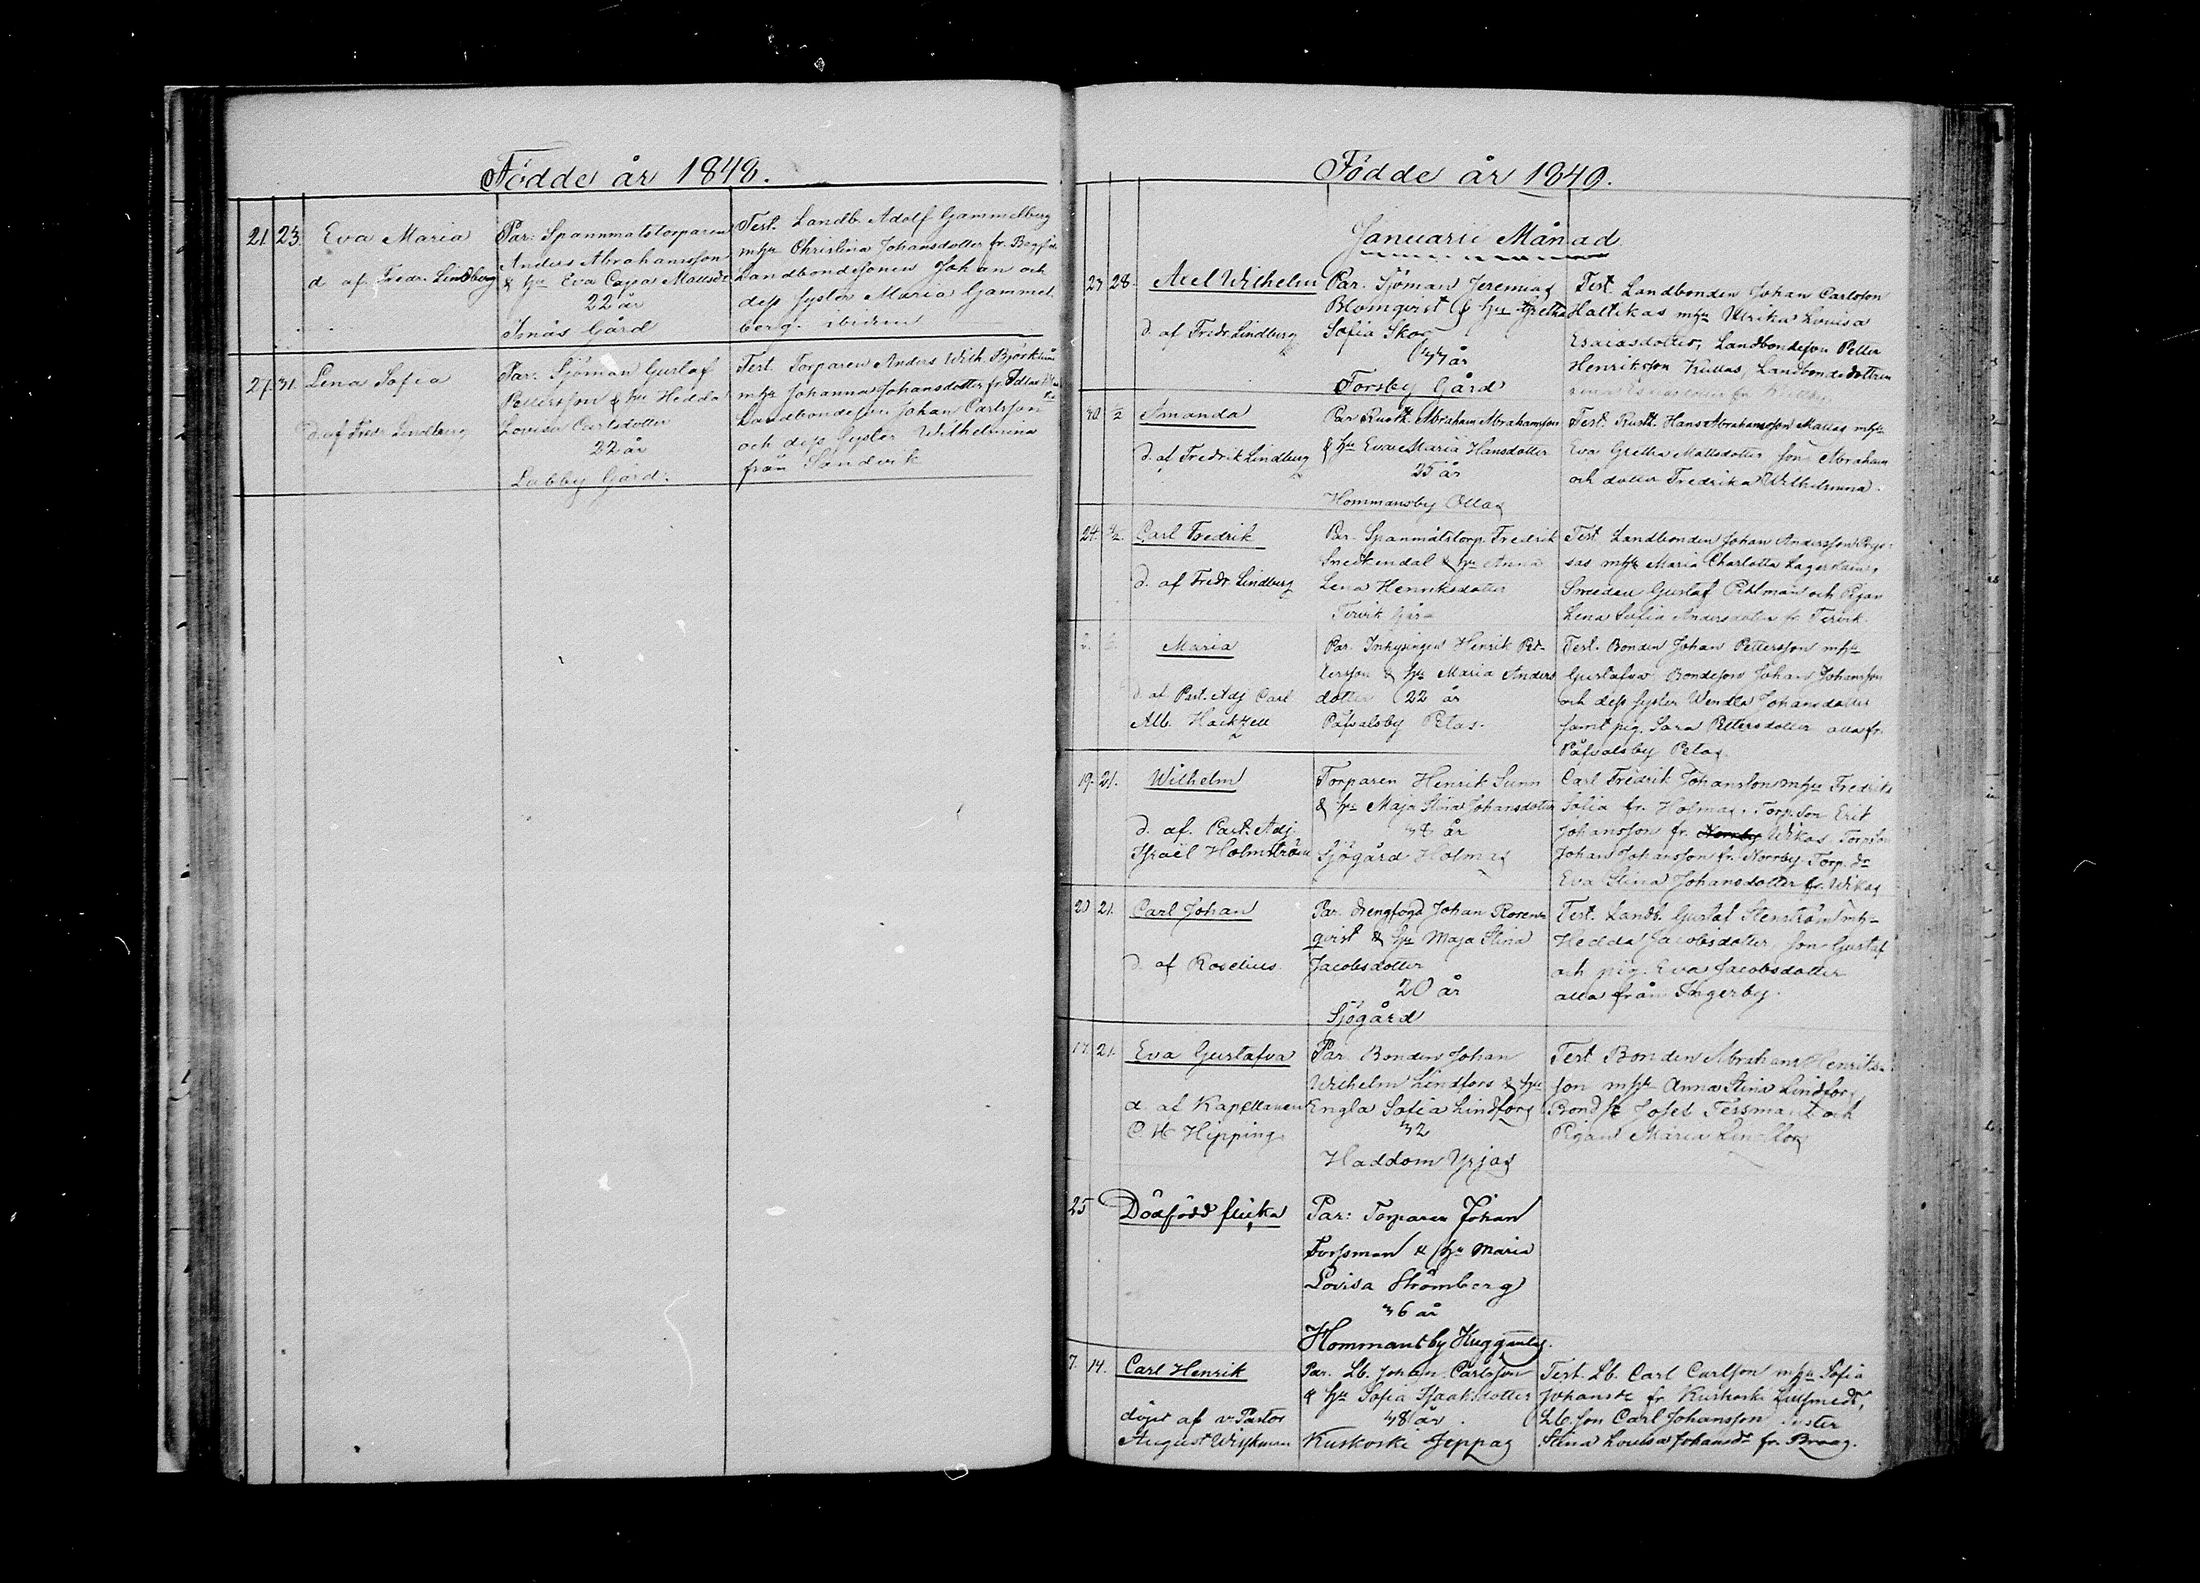 Födde år 1848.
21. 23. Eva Maria
d. af Fredr. Lindberg
Par: Spannmålstorparen
Anders Abrahamsson
& hu Eva Cajsa Mattsdr
22 år
Isnäs Gård
Test. Landb. Adolf Gammelberg
mhu Christina Johansdotter fr.
Landbondesonen Johan och
dess syster Maria Gammel
berg. ibidem
27. 31. Lena Sofia
d. af Fredr. Lindberg
Par: Sjöman Gustaf
Pettersson & hu Hedda
Lovisa Carlsdotter
22 år
Labby Gård.
Test. Torparen Anders Wilh. Björklund
mhu Johanna Johansdotter fr.
Landbondeson Johan Carlsson
och dess syster Wilhelmina
från Sandvik
Födde år 1849.
Januarii Månad
28. Axel Wilhelm
d. af Fredr. Lindberg
Par. Sjöman Jeremias
Blomqvist & hu Greta
Sofia Skog
år
Forsby Gård
Test. Landbonden Johan Carlsson
Haltikas mhu Ulrika Lovisa
Esaiasdotter, Landbondeson Petter
Henriksson Kullas, Landbondedottren
30. Amanda
d. af Fredrik Lindberg
Par Rusth. Abraham Abrahamsson
& hu Eva Maria Hansdotter
25 år
Hommansby Ollas
Test. Rusth. Hans Abrahamsson Mattas mhu
Eva Gretha Mattsdotter son Abraham
och dotter Fredrika Wilhelmina.
24. Carl Fredrik
d. af Fredr. Lindberg
Par. Spanmålstorp. Fredrik
Snedkendal & hu Anna
Lena Henriksdotter
Tervik Gård
Test. Landbonden Johan Andersson
sas mhu Maria Charlotta
Smeden Gustaf Pihlman och Pigan
Lena Sofia Andersdotter fr. Tervik.
2. Maria
d. af Past. Adj. Carl
Alb. Hackzell
Par. Inhysingen Henrik Pet-
tersson & hu Maria Anders
dotter 22 år
Påfvalsby Pelas.
Test. Bonden Johan Pettersson mhu
Gustafva Bondeson Johan Johansson
och dess syster Wendla Johansdotter
samt pig. Sara Pettersdotter alla fr.
Påfvalsby Pelas
19. 21. Wilhelm
d. af. Past. Adj.
Israël Holmström
Torparen Henrik Sunn
& hu Maja Stina Johansdotter
38 år
Sjögård Holmas
Carl Fredrik Johansson mhu Fredrika
Sofia fr. Holmas. Torp.son Erik
Johansson fr. Norrby Wikas Torpson
Johan Johansson fr. Norrby. Torp. dr
Eva Stina Johansdotter fr. Wikas
20 21. Carl Johan
d. af Roselius
Par. drengfogd Johan Rosen-
qvist & hu Maja Stina
Jacobsdotter
20 år
Sjögård
Test. Landb. Gustaf Stenström mhu
Hedda Jacobsdotter, son Gustaf
och pig. Eva Jacobsdotter
alla från Ingerby.
17. 21. Eva Gustafva
d. af Kapellanen
C. H. Hipping.
Par Bonden Johan
Wilhelm Lindfors & hu
Engla Sofia Lindfors
32
Haddom Yrjas
Test Bonden Abraham Henriks-
son mhu Anna Stina Lindfors
Bondsn Josef Tessman och
Pigan Maria Lindfors
25 Dödfödd flicka
Par: Torparen Johan
Forssman & hu Maria
Lovisa Strömberg
36 år
Hommansby Kuggantas.
7. 14. Carl Henrik
döpt af v. Pastor
August Wiikman
Par. Lb. Johan Carlsson
& hu Sofia Isaksdotter
38 år.
Kuskoski Jeppas
Test. Lb. Carl Carlson mhu Sofia
Johansdr fr Kuskoski
Lb. son Carl Johansson syster
Stina Lovisa Johansdr fr. Braas.